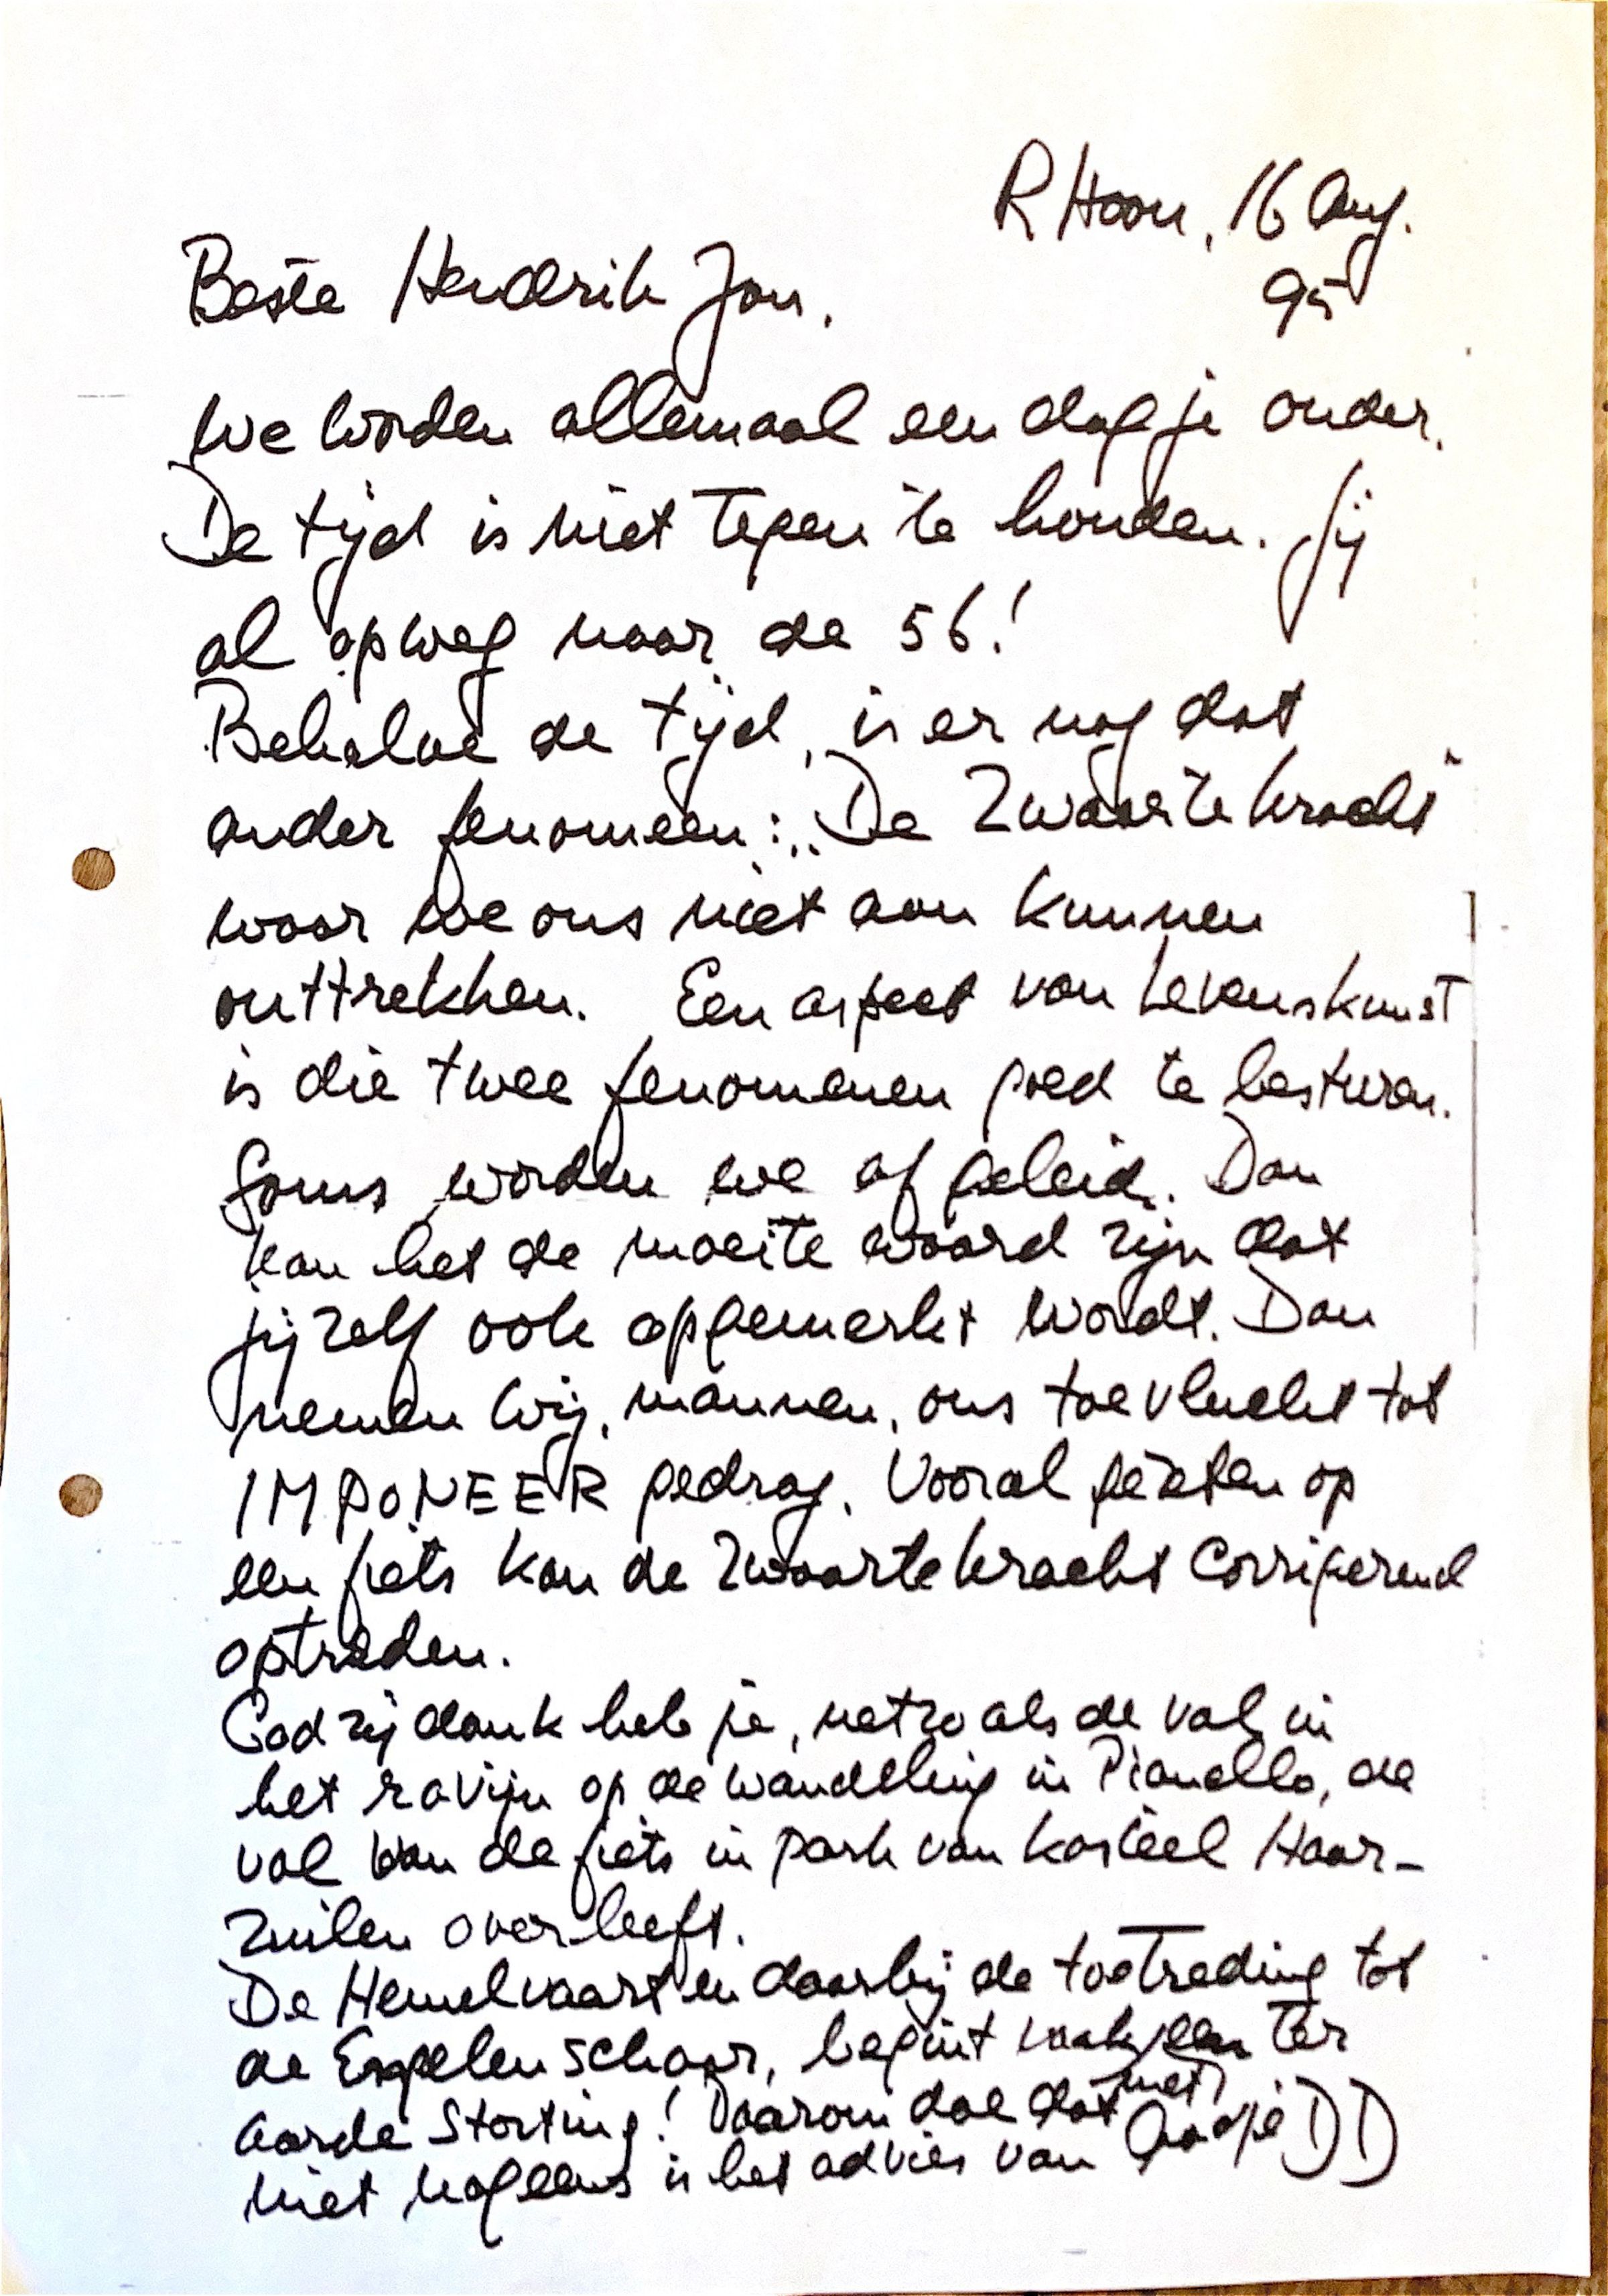 R Hoon, 16 Aug.
95
Beste Hendrik Jan,
We worden allemaal een dagje ouder.
De tijd is niet tegen te houden. Jij
al op weg naar de 56!
Behalve de tijd, is er nog dat
ander fenomeen: „De Zwaartekracht"
waar we ons niet aan kunnen
onttrekken. Een aspect van Levenskunst
is die twee fenomenen goed te besturen.
Soms worden we afgeleid. Dan
kan het de moeite waard zijn dat
jijzelf ook opgemerkt wordt. Dan
nemen wij, mannen, ons toevlucht tot
IMPONEER gedrag. Vooral gezeten op
een fiets kan de zwaartekracht corrigerend
optreden.
God zij dank heb je, net zo als de val in
het ravijn op de wandeling in Pianello, de
val van de fiets in park van kasteel Haar-
zuilen overleeft.
De Hemelvaart en daarbij de toetreding tot
de Engelenschaar, begint vaak een ter
aarde storting! Daarom doe dat
met
niet nog eens is het advies van Aadje DD